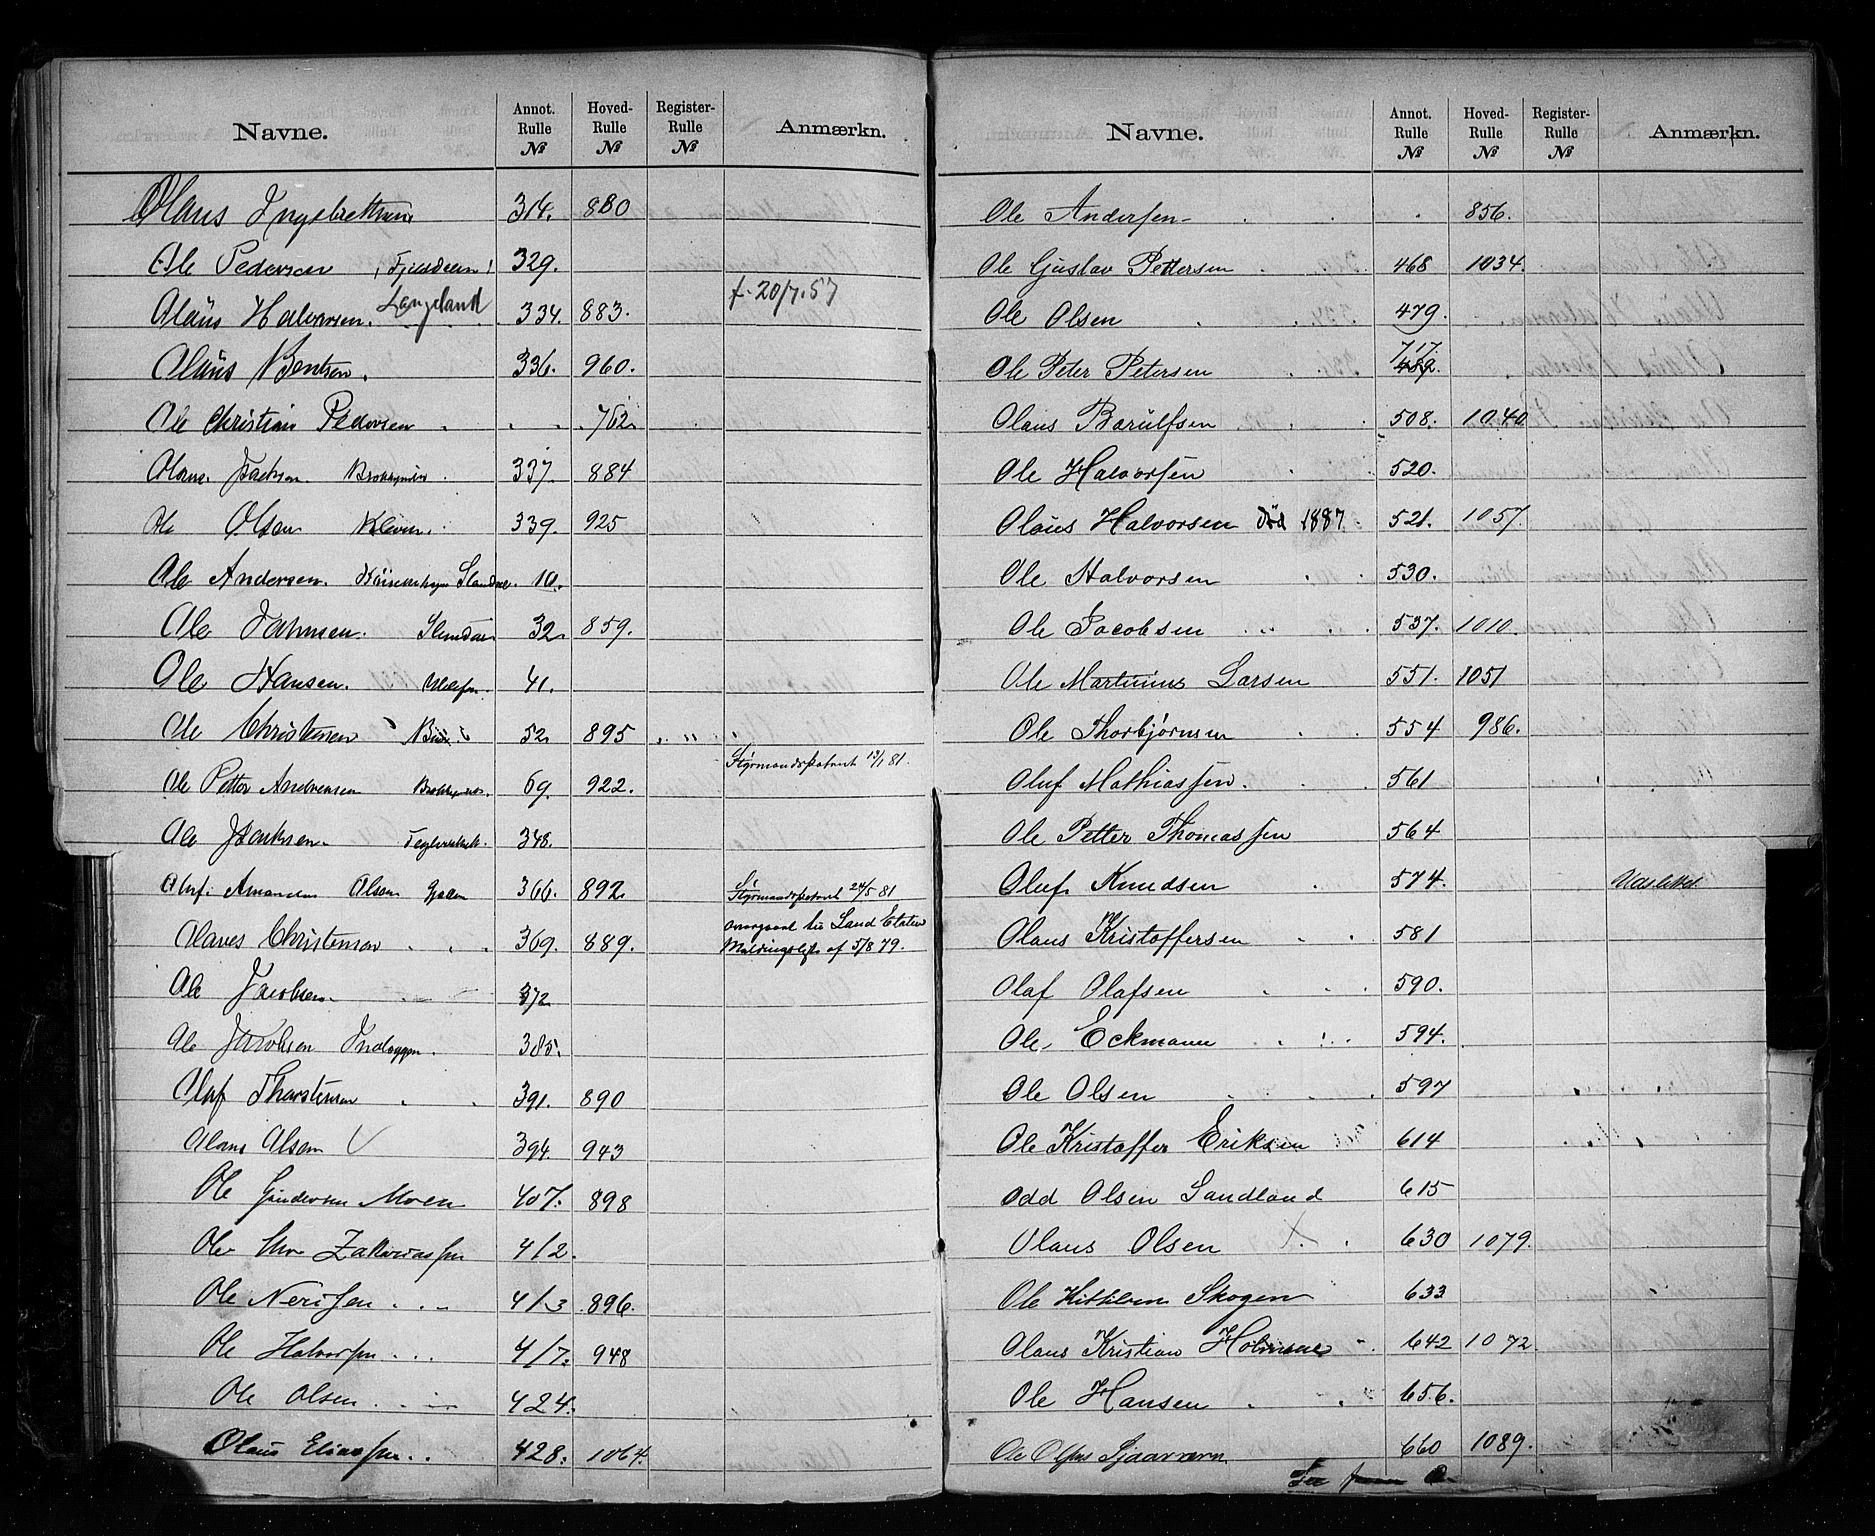 Navne. Annot. Rulle № Hoved-Rulle № Register-Rulle № Anmærkn.
Olaus Ingebretsen 314. 880
Ole Pedersen 329.
Olaüs Halvorsen. Langeland 334. 883. f. 20/7.57
Olaüs Bentsen. 336. 960.
Ole Christian Pedersen 762.
Olaus Jacksen 337. 884
Ole Olsen Kleven. 339. 925
Ole Andersen. 10.
Ole Jahnsen. 32. 859.
Ole Hansen. 41.
Ole Christensen 52. 895
Ole Petter Andreasen 69. 922. Styrmandspatent 12/1 81.
Ole Jacksen. Teglverket. 348.
Oluf Amandus Olsen 366. 892. Styrmandspatent 24/5 81
Olaves Christensen 369. 889. overgaaet til Land Etaten Meldingsliste af 5/8 79.
Ole Jacobsen 372
Ole Jacobsen 385.
Olaf Thorstensen 391. 890
Olaus Olsen 394. 943
Ole Gundersen Moen 407. 898
Ole Zakariassen 412.
Ole Nerisen 413 896.
Ole Halvorsen 417. 948
Ole Olsen 424.
Olaus Eliassen 428. 1064.
Navne. Annot. Rulle № Hoved-Rulle № Register-Rulle № Anmærkn.
Ole Andersen 856.
Ole Gustav Pettersen 468 1034.
Ole Olsen 479.
717.
Ole Peter Petersen 489.
Olaus Barülfsen 508. 1040
Ole Halvorsen 520.
Olaüs Halvorsen død 1887. 521. 1057.
Ole Halvorsen 530.
Ole Jacobsen 537. 1010.
Ole Martinius Larsen 551. 1051
Ole Thorbjørnsen 554 986.
Oluf Mathiassen. 561
Ole Petter Thomassen 564
Oluf Knudsen 574. Udslettet
Olaus Kristoffersen 581
Olaf Olafsen 590.
Ole Eckmann 594.
Ole Olsen 597
Ole Kristoffer Eriksen 614
Odd Olsen Sandland 615
Olaus Olsen 630 1079.
Ole Kittilsen Skogen 633
Olaus Kristian Holmsen 642 1072
Ole Hansen 656.
Ole Olsen Sjaavaern 660 1089.